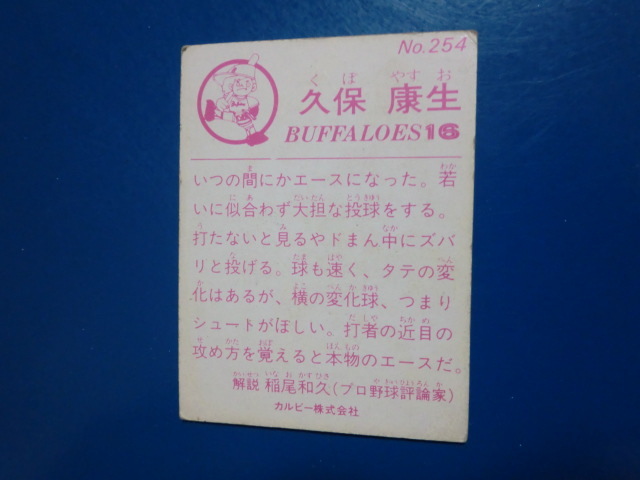 No.254
くぼ やすお
久保 康生
BUFFALOES16
いつの間にかエースになった。若
いに似合わず大担な投球をする。
打たないと見るやドまん中にズバ
リと投げる。球も速く、タテの変
化はあるが、横の変化球、つまり
シュートがほしい。打者の近目の
攻め方を覚えると本物のエースだ。
解説 稲尾和久(プロ野球評論家)
カルビー株式会社